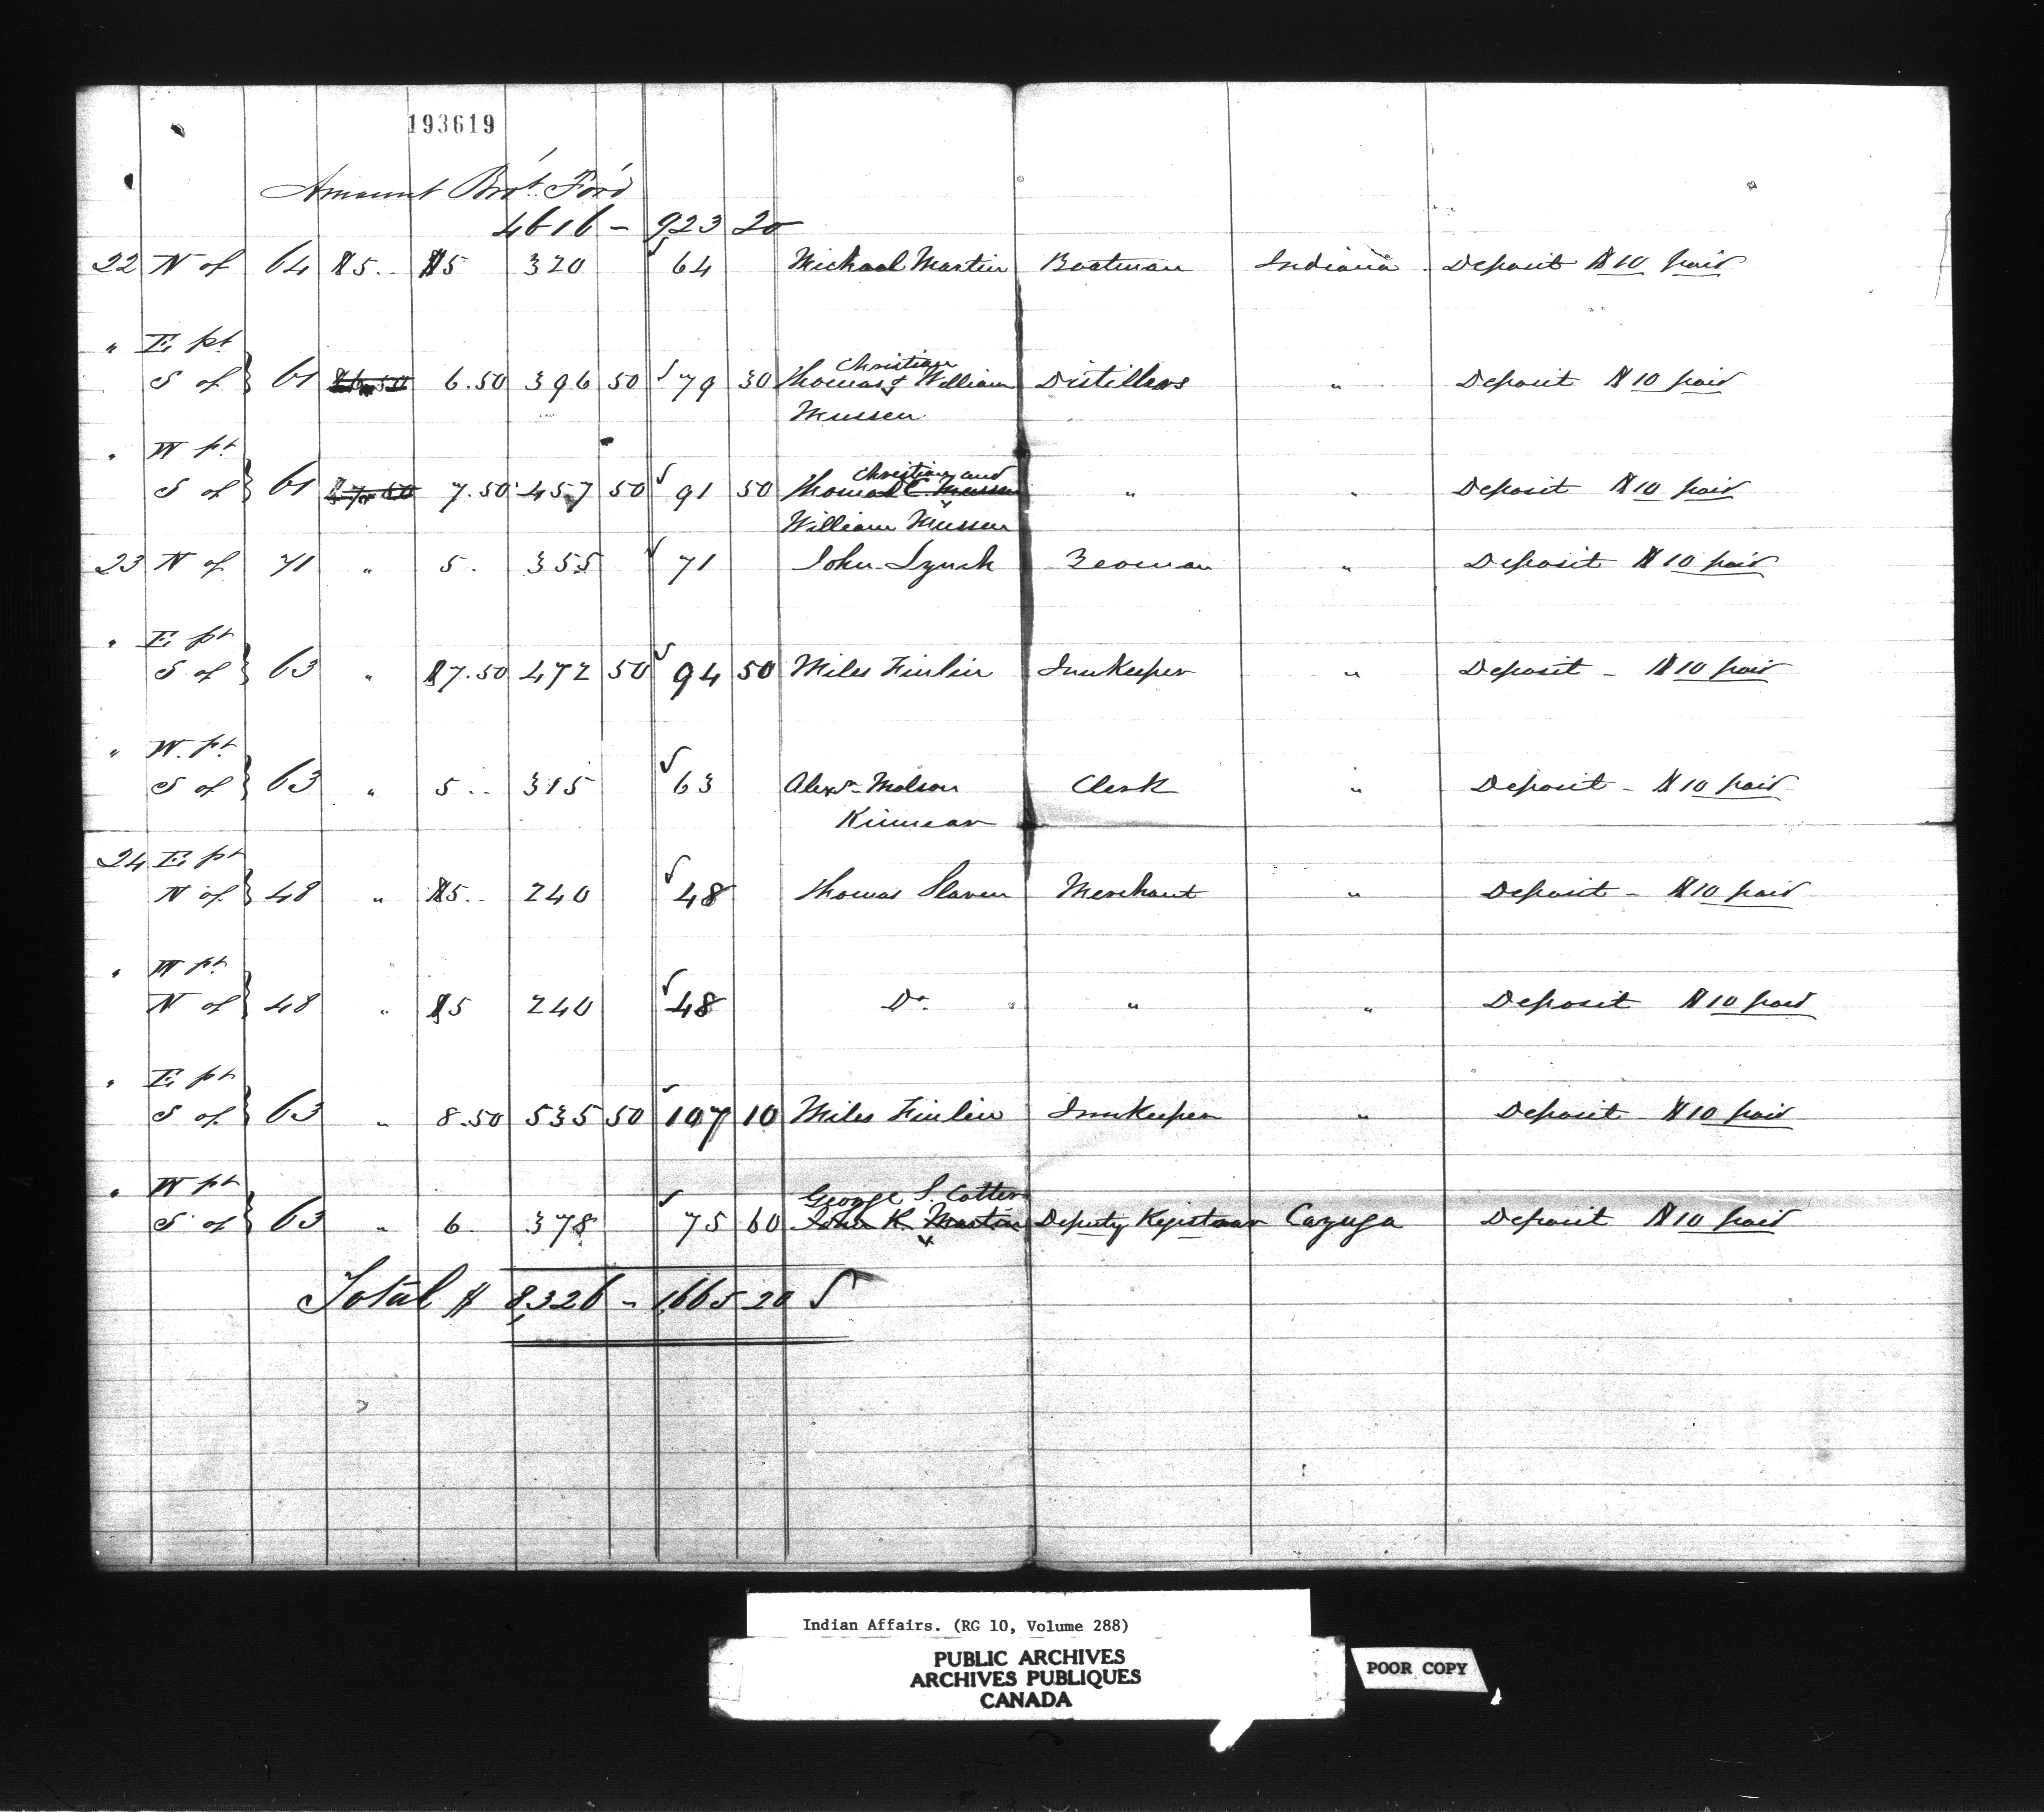 193619
Amount Brot. Ford
4616 – 923 20
22 N of 64 $5.. $5 320 64 Michael Martin Boatman Indiana Deposit $10 paid
" E pt
Christian
S of } 61 6.50 396 50 79 30 Thomas & William Distillers " Deposit $10 paid
Mussen
" W pt
Christian and
S of } 61 $7.50 7.50 457 50 91 50 Thomas C. Mussen " " Deposit $10 paid
William Mussen
23 N of 71 " 5. 355 71 John Lynch Yeoman " Deposit $10 paid
" E pt
S of } 63 " $7.50 472 50 94 50 Miles Finlin InnKeeper " Deposit – $10 paid
" W. pt
S of } 63 " 5.. 315 63 Alexr. Molson Clerk " Deposit – $10 paid
Kinnear
24 E pt
N of } 48 " $5.. 240 48 Thomas Slaven Merchant " Deposit – $10 paid
" W pt
N of } 48 " $5 240 48 Do. " " Deposit $10 paid
" E pt
S of } 63 " 8.50 535 50 107 10 Miles Finlin InnKeeper " Deposit – $10 paid
" W pt
George S. Cotter
S of } 63 " 6. 378 75 60 John R. Martin Deputy Registrar Cayuga Deposit $10 paid
Total $ 8,326 – 1,665 20
Indian Affairs. (RG 10, Volume 288)
PUBLIC ARCHIVES
ARCHIVES PUBLIQUES
CANADA
POOR COPY